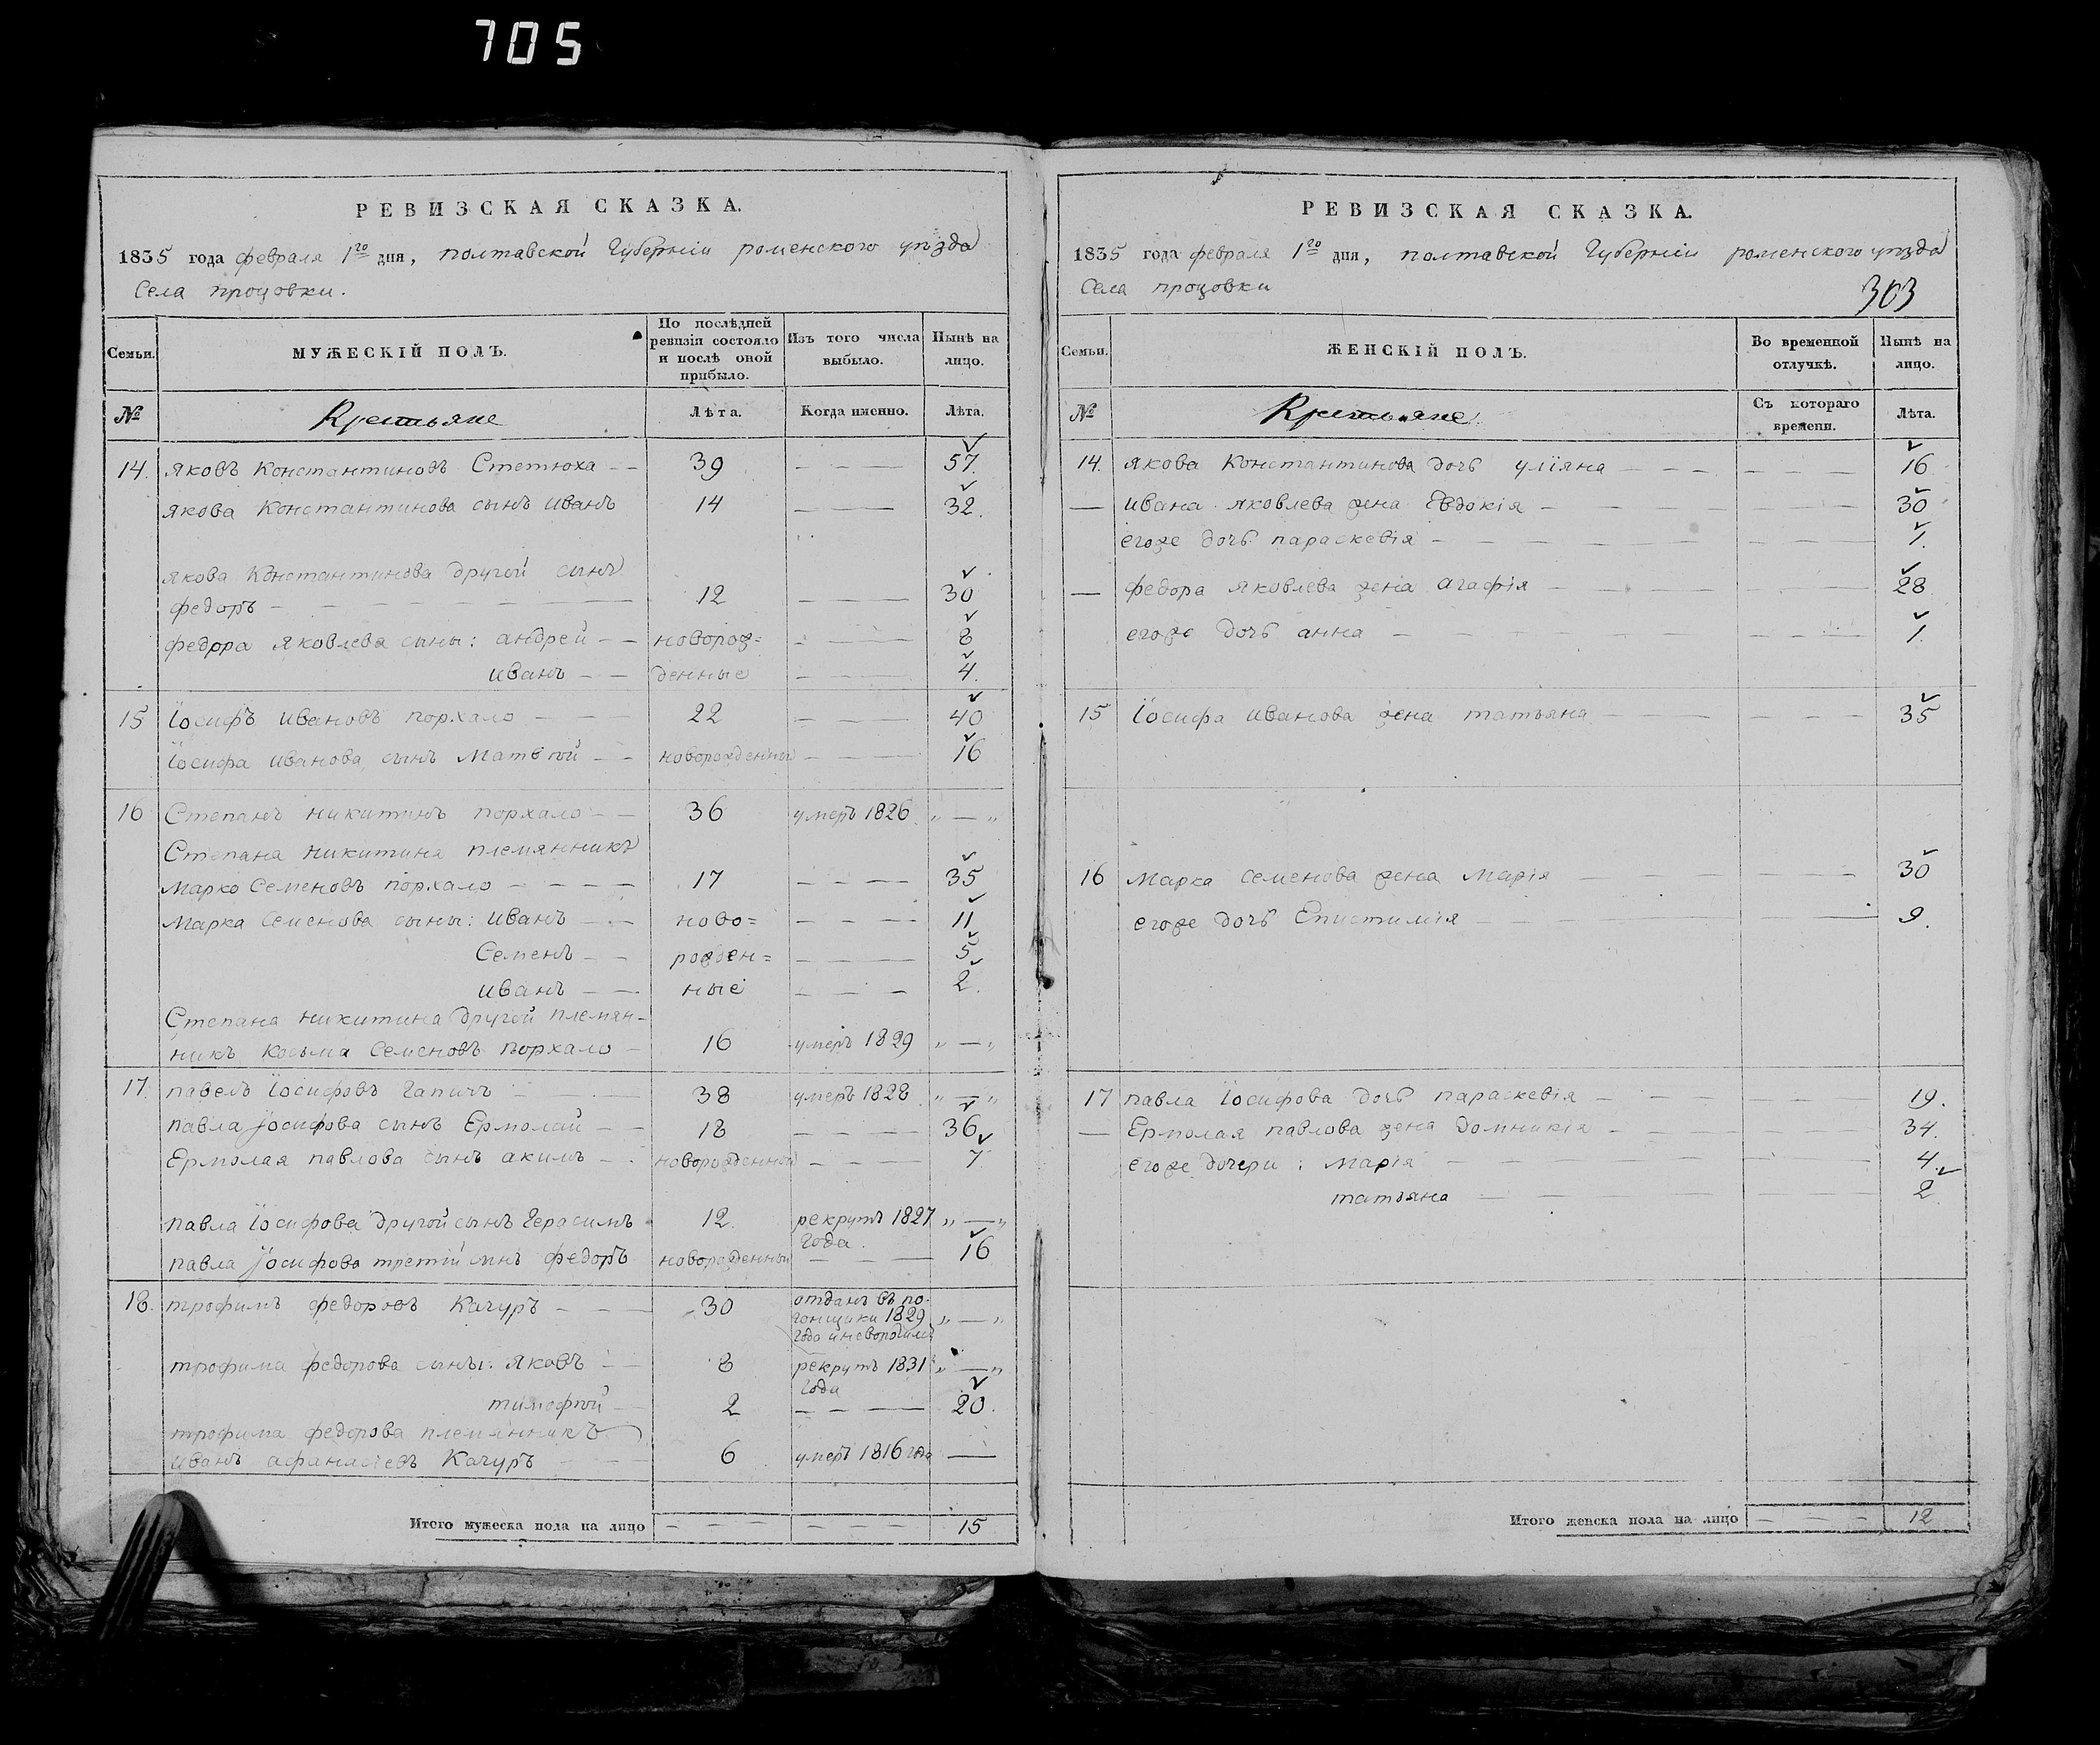 705
РЕВИЗСКАЯ СКАЗКА.
1835 года февраля 1го дня, полтавской Губернiи роменского уѣзда
Села процовки.
Семьи.
МУЖЕСКIЙ ПОЛЪ.
По послѣдней ревизiи состояло и послѣ оной прибыло.
Изъ того числа выбыло.
Нынѣ на лицо.
№
Крестьяне
Лѣта.
Когда именно.
Лѣта.
14. яковъ Константиновъ Стетюха — 39 — 57.
якова Константинова сынъ иванъ 14 — 32.
якова Константинова другой сынъ
федоръ — 12 — 30
федора яковлева сыны: андрей — новорож= — 8
иванъ — денные — 4.
15 Iосифъ ивановъ порхало — 22 — 40
Iосифа иванова сынъ Матвѣй — новорожденный — 16
16 Степанъ никитинъ порхало — 36 умеръ 1826 „ — „
Степана никитина племянникъ
Марко Семеновъ порхало — 17 — 35
Марка Семенова сыны: иванъ — ново= — 11
Семенъ — рожден= — 5
иванъ — ные — 2.
Степана никитина другой племян-
никъ Косьма Семеновъ порхало — 16 умеръ 1829 „ — „
17. павелъ Iосифовъ Гапичъ — 38 умеръ 1828 „ — „
павла Iосифова сынъ Ермолай — 18 — 36
Ермолая павлова сынъ акимъ — новорожденной — 7
павла Iосифова другой сынъ Герасимъ 12. рекрутъ 1827 „ — „
года.
павла Iосифова третiй сынъ федоръ новорожденной — 16
18. трофимъ федоровъ Качуръ — 30 отданъ въ по-
гонщики 1829 „ — „
года и неворотился
трофима федорова сыны: яковъ — 8 рекрутъ 1831 „ — „
года
тимофѣй — 2 — 20.
трофима федорова племянникъ
иванъ афанасiевъ Качуръ — 6 умеръ 1816 года —
Итого мужеска пола на лицо — — 15
РЕВИЗСКАЯ СКАЗКА.
1835 года февраля 1го дня, полтавской Губернiи роменского уѣзда
Села процовки
303
Семьи.
ЖЕНСКIЙ ПОЛЪ.
Во временной отлучкѣ.
Нынѣ на лицо.
№
Крестьяне
Съ котораго времени.
Лѣта.
14. якова Константинова дочь улiяна — 16
— ивана яковлева жена Евдокiя — 30
егоже дочь параскевiя — 1.
— федора яковлева жена агафiя — 28
егоже дочь анна — 1.
15 Iосифа иванова жена татьяна — 35
16 Марка Семенова жена Марiя — 30
егоже дочь Епистимiя — 9.
17 павла Iосифова дочь параскевiя — 19.
— Ермолая павлова жена домникiя — 34.
егоже дочери: марiя — 4.
татьяна — 2.
Итого женска пола на лицо — 12